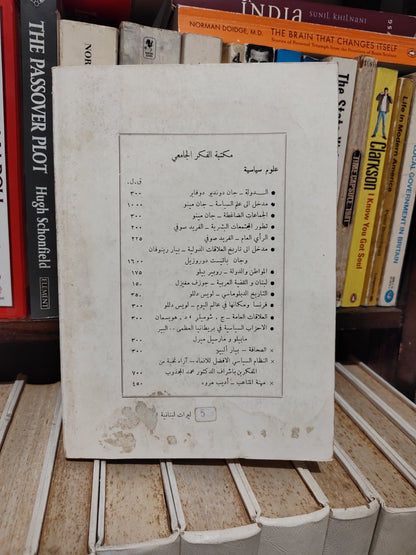 INDIA
SUNIL KHILNANI
NORMAN DOIDGE, M.D.
THE BRAIN THAT CHANGES ITSELF
Stories of Personal Triumph from the Frontiers of Brain Science
THE PASSOVER PLOT
Hugh Schonfield
ELEMENT
NORMA
Clarkson
I Know You Got Soul
Life in Modern America
مكتبة الفكر الجامعي
علوم سياسية
ق.ل.
● الدولة – جان دونديو دوفابر ٣٠٠
● مدخل الى علم السياسة – جان مينو ١٠٠٠
● الجماعات الضاغطة – جان مينو ٣٠٠
● تطور المجتمعات البشرية – الفريد صوفي ٢٠٠
● الرأي العام – الفريد صوفي ٢٢٥
● مدخل الى تاريخ العلاقات الدولية – بيار رينوفان
وجان باتيست دوروزيل ١٦٠٠
● المواطن والدولة – روبير بيلو ١٧٥
● لبنان و القضية العربية – جوزف مغيزل ١٥٠
● التاريخ الدبلوماسي – لويس دللو ٣٥٠
● فرنسا ومكانها في عالم اليوم – لويس دللو
● العلاقات العامة – ج . شوميلر ، د . هويسمان ٣٠٠
● الاحزاب السياسية في بريطانيا العظمى –
مابيلو و مارسيل ميرل ٣٠٠
× الصحافة – بيار ألبير ٣٠٠
× النظام السياسي الافضل للانماء – آراء نخبة من
المفكرين باشراف الدكتور محمد المجذوب ٧٠٠
× مهنة المتاعب – أديب مروه ٤٥٠
5 ليرات لبنانية